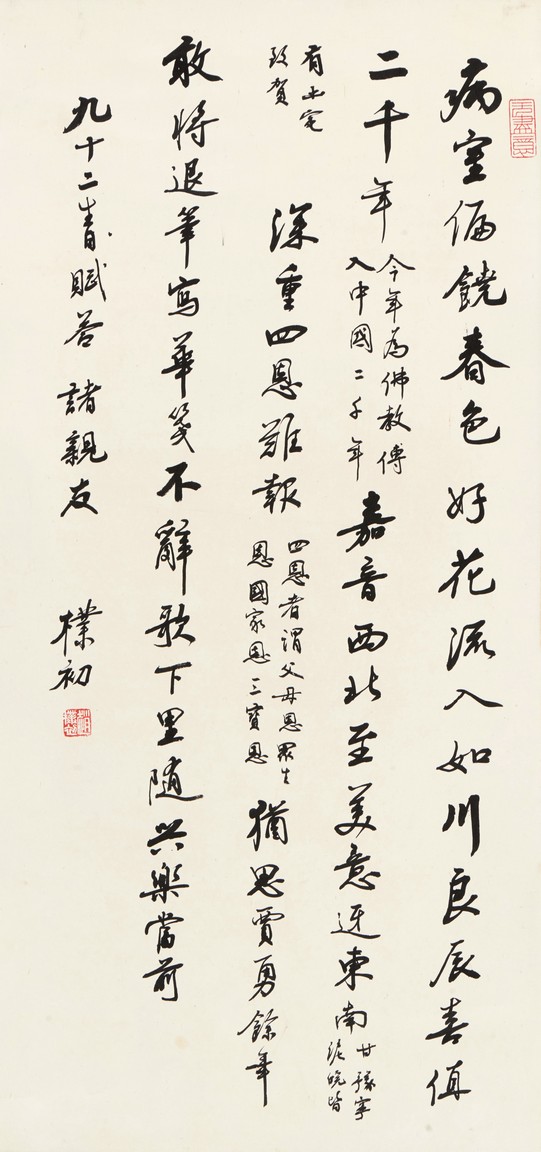 無盡意
病室偏饒春色好花流入如川良辰喜值
二千年
今年為佛教傳
入中國二千年
嘉音西北至美意迓東南
甘豫寧
皖皆
有
致賀
深重四恩難報
四恩者謂父母恩眾生
恩國家恩三寶恩
猶思賈勇餘年
敢將退筆寫華箋不辭歌下里隨興樂當前
九十二生日賦答 諸親友 樸初
趙樸初